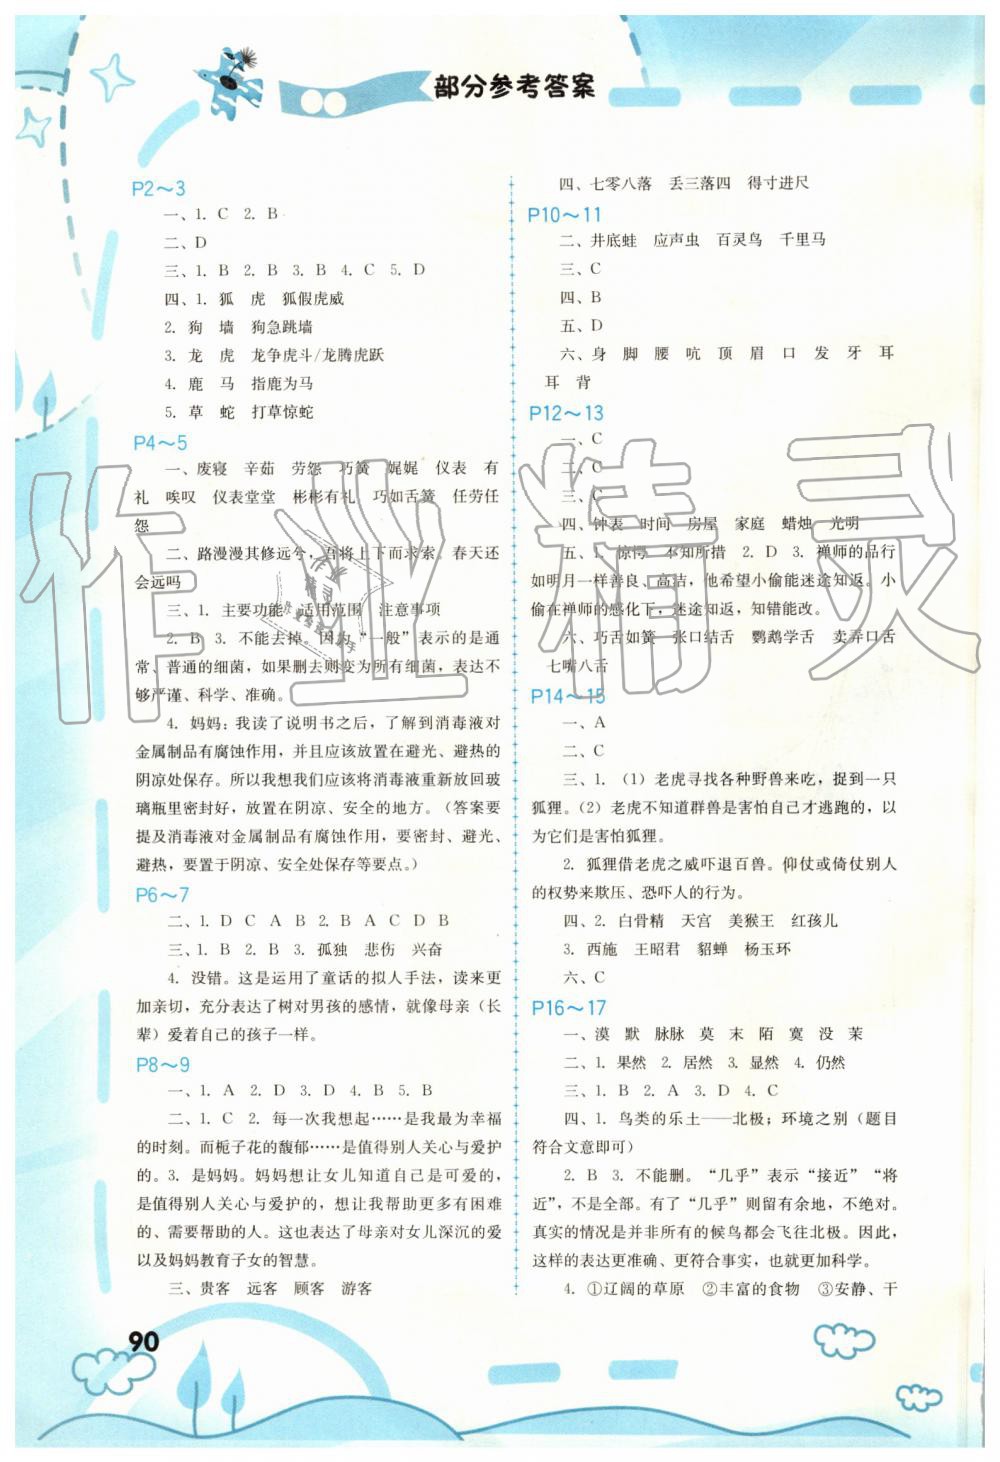 部分参考答案
P2～3
一、1. C 2. B
二、D
三、1. B 2. B 3. B 4. C 5. D
四、1. 狐 虎 狐假虎威
2. 狗 墙 狗急跳墙
3. 龙 虎 龙争虎斗/龙腾虎跃
4. 鹿 马 指鹿为马
5. 草 蛇 打草惊蛇
P4～5
一、废寝 辛茹 劳怨 巧簧 娓娓 仪表 有
礼 唉叹 仪表堂堂 彬彬有礼 巧如舌簧 任劳任
怨
二、路漫漫其修远兮，吾将上下而求索。春天还
会远吗
三、1. 主要功能 适用范围 注意事项
2. B 3. 不能去掉。因为“一般”表示的是通
常、普通的细菌，如果删去则变为所有细菌，表达不
够严谨、科学、准确。
4. 妈妈：我读了说明书之后，了解到消毒液对
金属制品有腐蚀作用，并且应该放置在避光、避热的
阴凉处保存。所以我想我们应该将消毒液重新放回玻
璃瓶里密封好，放置在阴凉、安全的地方。（答案要
提及消毒液对金属制品有腐蚀作用，要密封、避光、
避热，要置于阴凉、安全处保存等要点。）
P6～7
二、1. D C A B 2. B A C D B
三、1. B 2. B 3. 孤独 悲伤 兴奋
4. 没错。这是运用了童话的拟人手法，读来更
加亲切，充分表达了树对男孩的感情，就像母亲（长
辈）爱着自己的孩子一样。
P8～9
一、1. A 2. D 3. D 4. B 5. B
二、1. C 2. 每一次我想起……是我最为幸福
的时刻。而栀子花的馥郁……是值得别人关心与爱护
的。3. 是妈妈。妈妈想让女儿知道自己是可爱的，
是值得别人关心与爱护的，想让我帮助更多有困难
的、需要帮助的人。这也表达了母亲对女儿深沉的爱
以及妈妈教育子女的智慧。
三、贵客 远客 顾客 游客
90
四、七零八落 丢三落四 得寸进尺
P10～11
二、井底蛙 应声虫 百灵鸟 千里马
三、C
四、B
五、D
六、身 脚 腰 吭 顶 眉 口 发 牙 耳
耳 背
P12～13
一、C
二、C
三、C
四、钟表 时间 房屋 家庭 蜡烛 光明
五、1. 惊愕 不知所措 2. D 3. 禅师的品行
如明月一样善良、高洁，他希望小偷能迷途知返。小
偷在禅师的感化下，迷途知返，知错能改。
六、巧舌如簧 张口结舌 鹦鹉学舌 卖弄口舌
七嘴八舌
P14～15
一、A
二、C
三、1.（1）老虎寻找各种野兽来吃，捉到一只
狐狸。（2）老虎不知道群兽是害怕自己才逃跑的，以
为它们是害怕狐狸。
2. 狐狸借老虎之威吓退百兽。仰仗或倚仗别人
的权势来欺压、恐吓人的行为。
四、2. 白骨精 天宫 美猴王 红孩儿
3. 西施 王昭君 貂蝉 杨玉环
六、C
P16～17
一、漠 默 脉脉 莫 末 陌 寞 没 茉
二、1. 果然 2. 居然 3. 显然 4. 仍然
三、1. B 2. A 3. D 4. C
四、1. 鸟类的乐土——北极；环境之别（题目
符合文意即可）
2. B 3. 不能删。“几乎”表示“接近”“将
近”，不是全部。有了“几乎”则留有余地，不绝对。
真实的情况是并非所有的候鸟都会飞往北极。因此，
这样的表达更准确、更符合事实，也就更加科学。
4. ①辽阔的草原 ②丰富的食物 ③安静、干
作业精灵